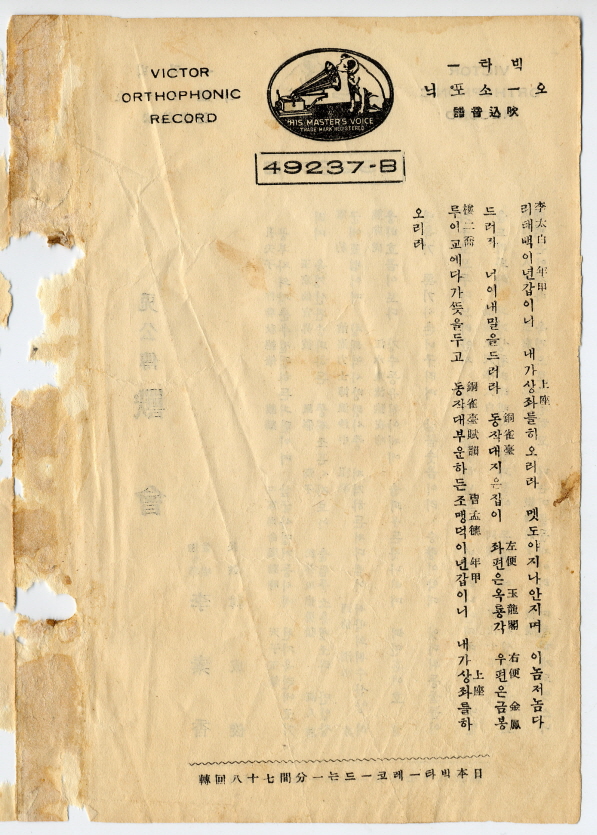 VICTOR
ORTHOPHONIC
RECORD
HIS MASTER'S VOICE
TRADE MARK REGISTERED
49237-B
빅타ー
오ー소포닉
吹込音譜
李太白 年甲 上座
리태백이년갑이니 내가상좌를히오리라 멧도야지나안지며 이놈저놈다
銅雀臺 左便 玉龍閣 右便 金鳳
드러라 너이내말을드러라 동작대지은집이 좌편은옥룡각 우편은금봉
樓二喬 銅雀臺賦韻 曹孟德 年甲 上座
루이교에다가뜻을두고 동작대부운하든조맹덕이년갑이니 내가상좌를하
오리라
日本빅타ー레코ー드는一分間七十八回轉